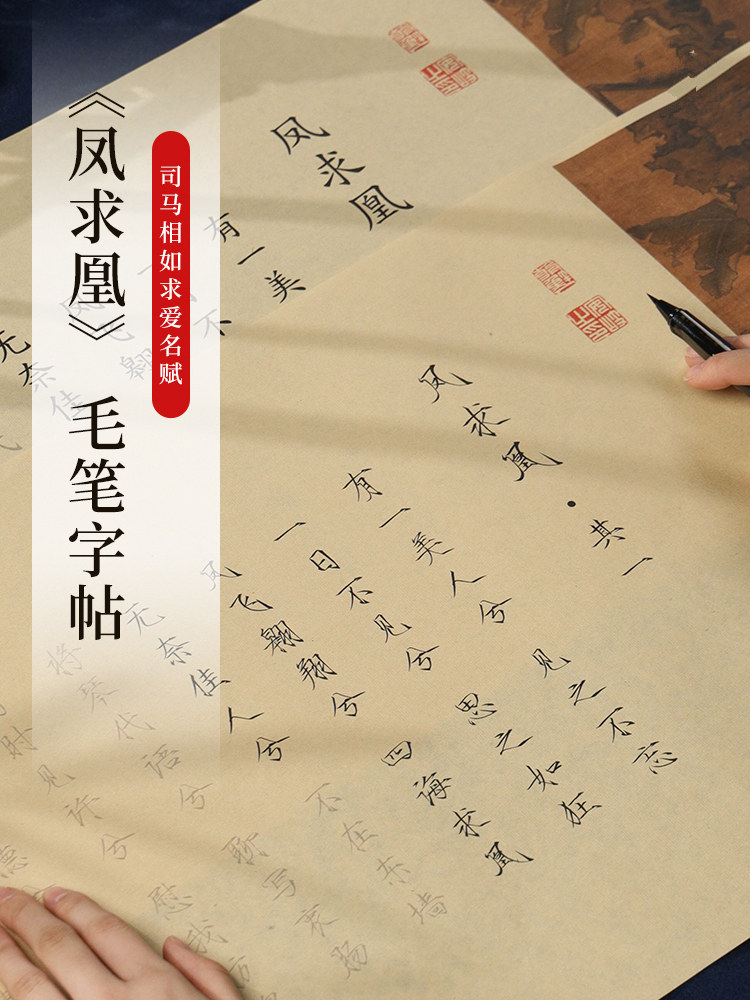 《凤求凰》毛笔字帖
司马相如求爱名赋
凤求凰
有一美
不
凤飞翱
无奈佳
凤求凰·其一
有一美人兮 见之不忘
一日不见兮 思之如狂
凤飞翱翔兮 四海求凰
无奈佳人兮 不在东墙
将琴代语兮 聊写衷肠
时见许兮 慰我彷
德